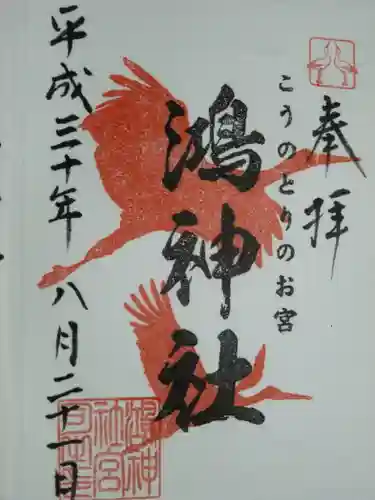 奉拝
こうのとりのお宮
鴻神社
平成三十年八月二十一日